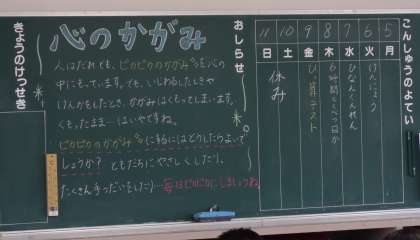 きょうのけっせき
心のかがみ
人はだれでも、ピカピカのかがみを心の
中にもっています。でも、いじわるしたときや
けんかをしたとき、かがみはくもってしまいます。
くもったまま…はいやですね。
ピカピカのかがみにするにはどうしたらよいで
しょうか？ ともだちにやさしくしたり、
たくさん手つだいをしたり…毎日ピカピカにしましょうね。
おしらせ
こんしゅうのよてい
5 月
6 火 けんこう
7 水 ひなんくんれん
8 木 6時間
9 金 ひき算テスト
10 土
11 日 休み